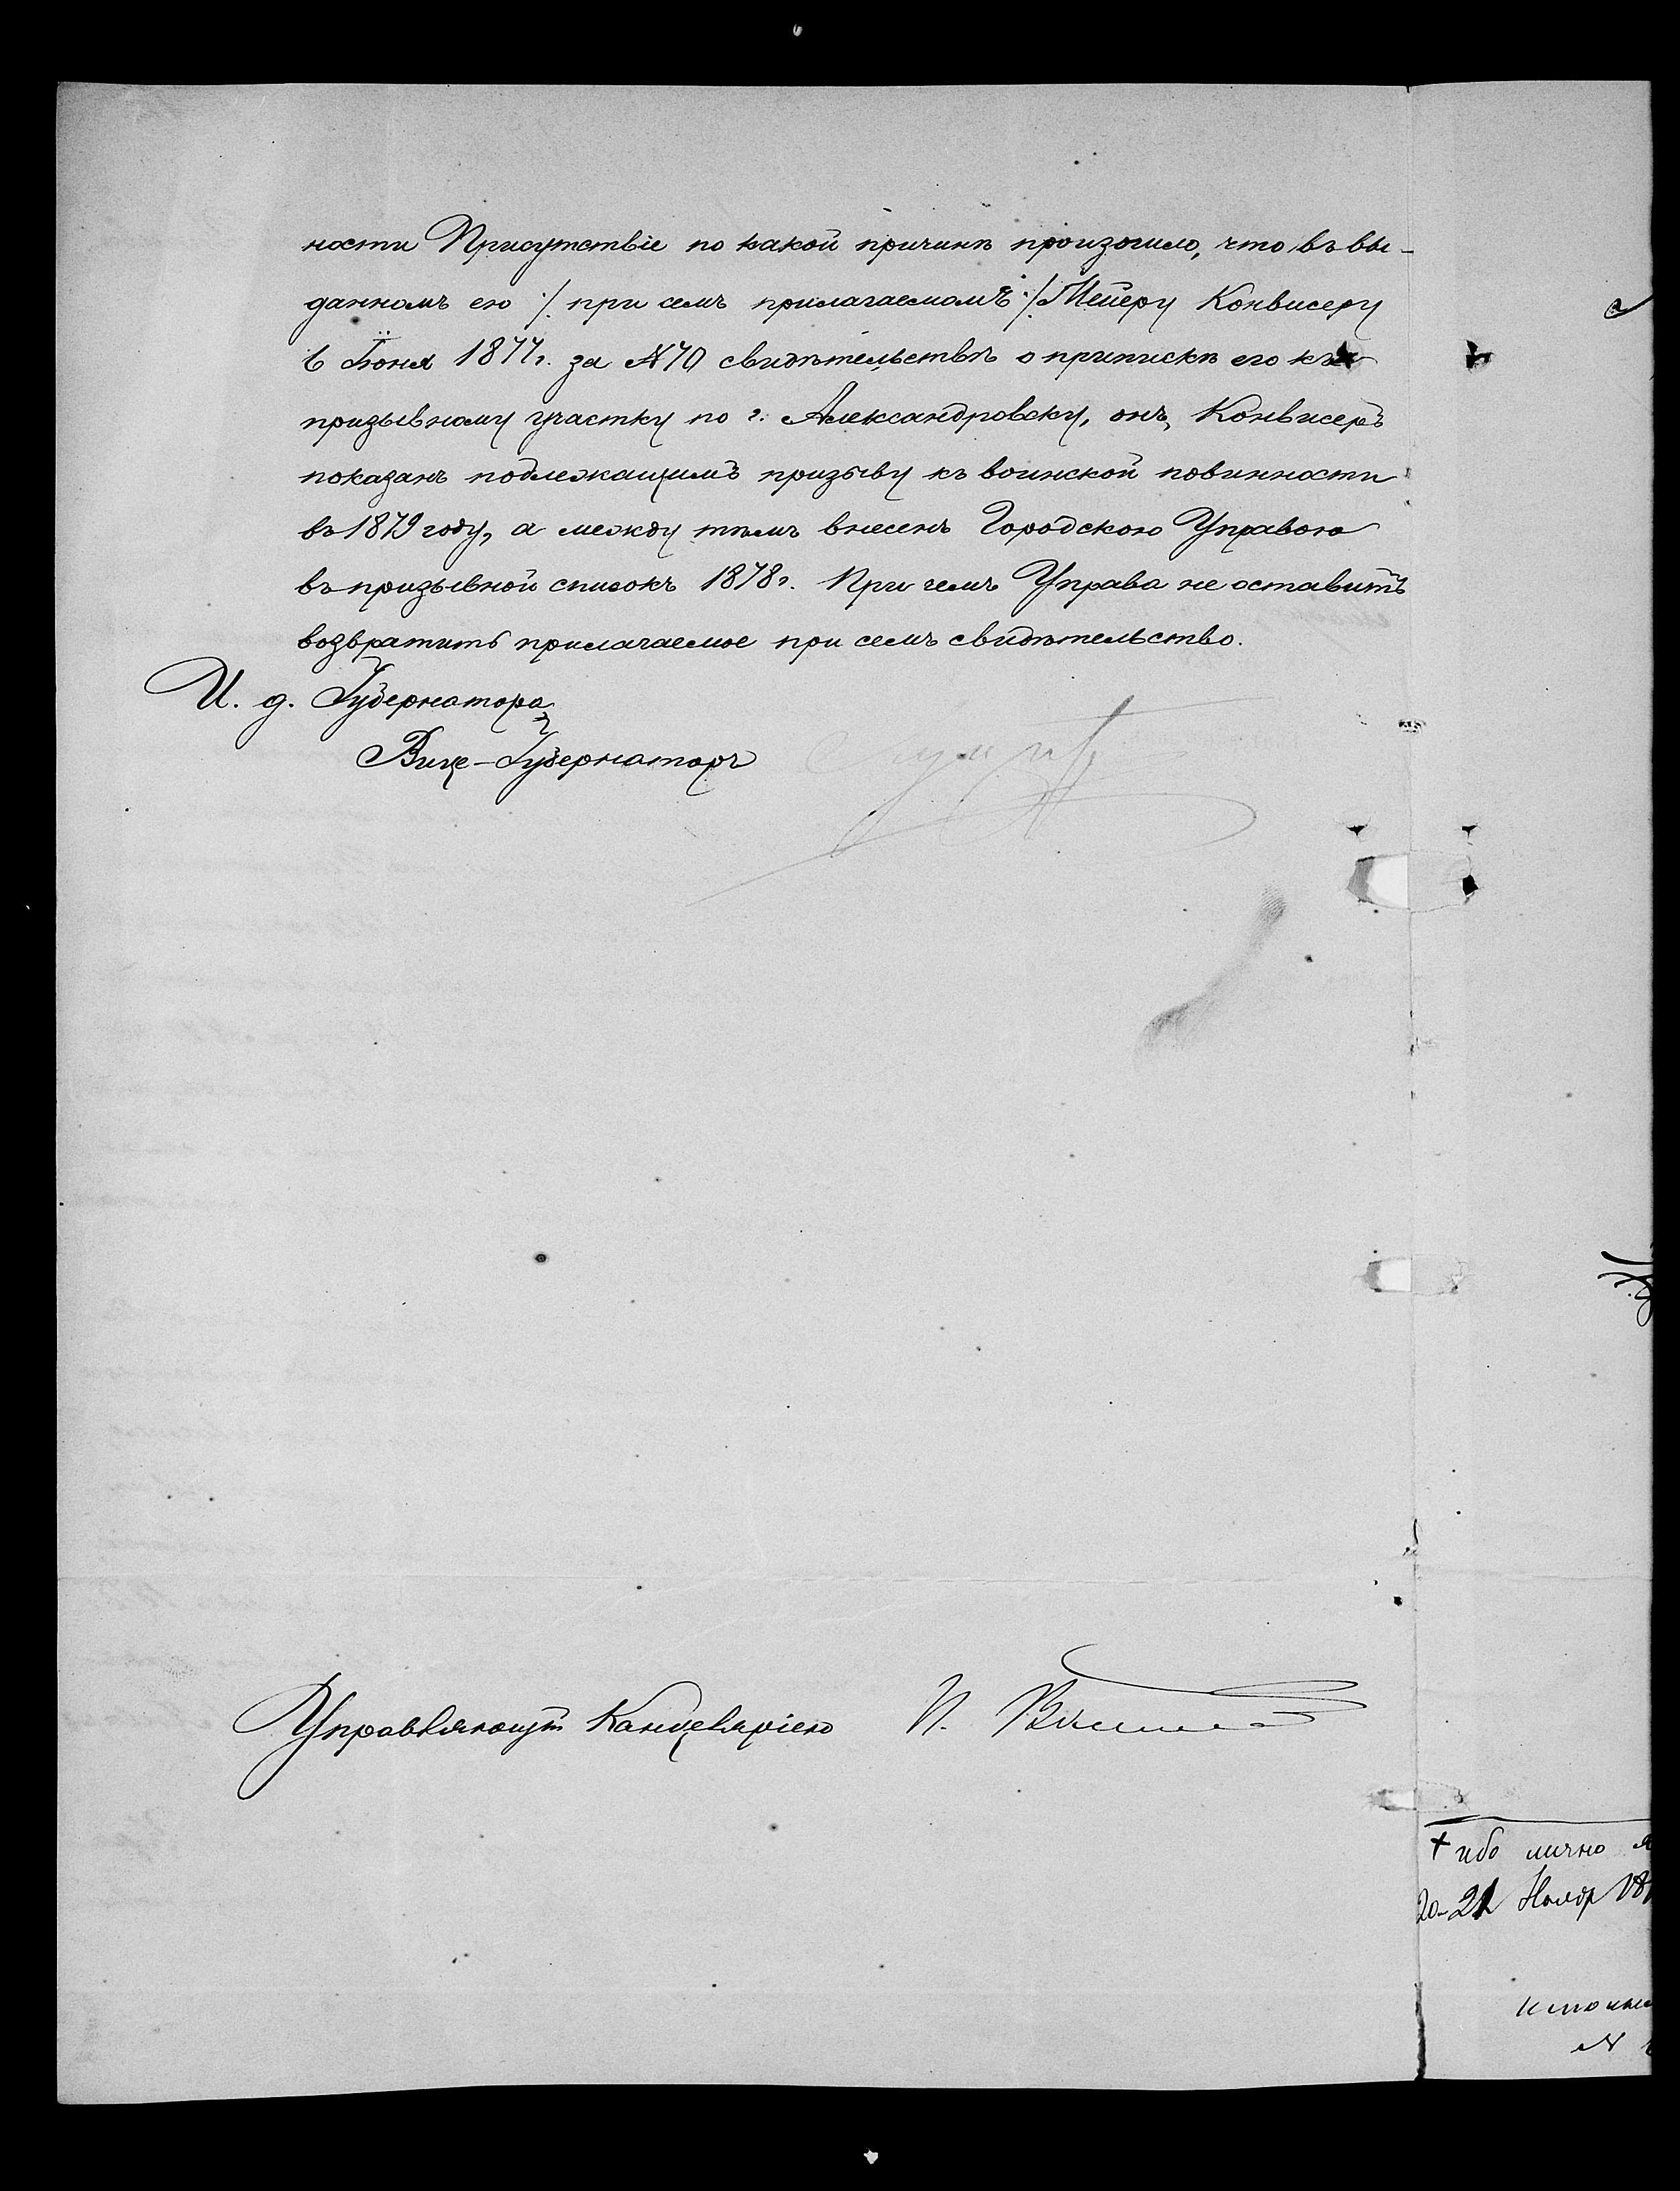 ности Присутствіе по какой причинѣ произошло, что въ вы-
данномъ ею ·/. при семъ прилагаемомъ ·/. Мейеру Конвисеру
6 Іюня 1877 г. за № 70 свидѣтельствѣ о припискѣ его къ
призывному участку по г. Александровску, онъ, Конвисеръ
показанъ подлежащимъ призыву къ воинской повинности
въ 1879 году, а между тѣмъ внесенъ Городскою Управою
въ призывной списокъ 1878 г. При чемъ Управа не оставитъ
возвратить прилагаемое при семъ свидѣтельство.
И. д. Губернатора,
Вице-Губернаторъ
Управляющій Канцеляріею
+ ибо лично
20-21 Ноябр 18
№